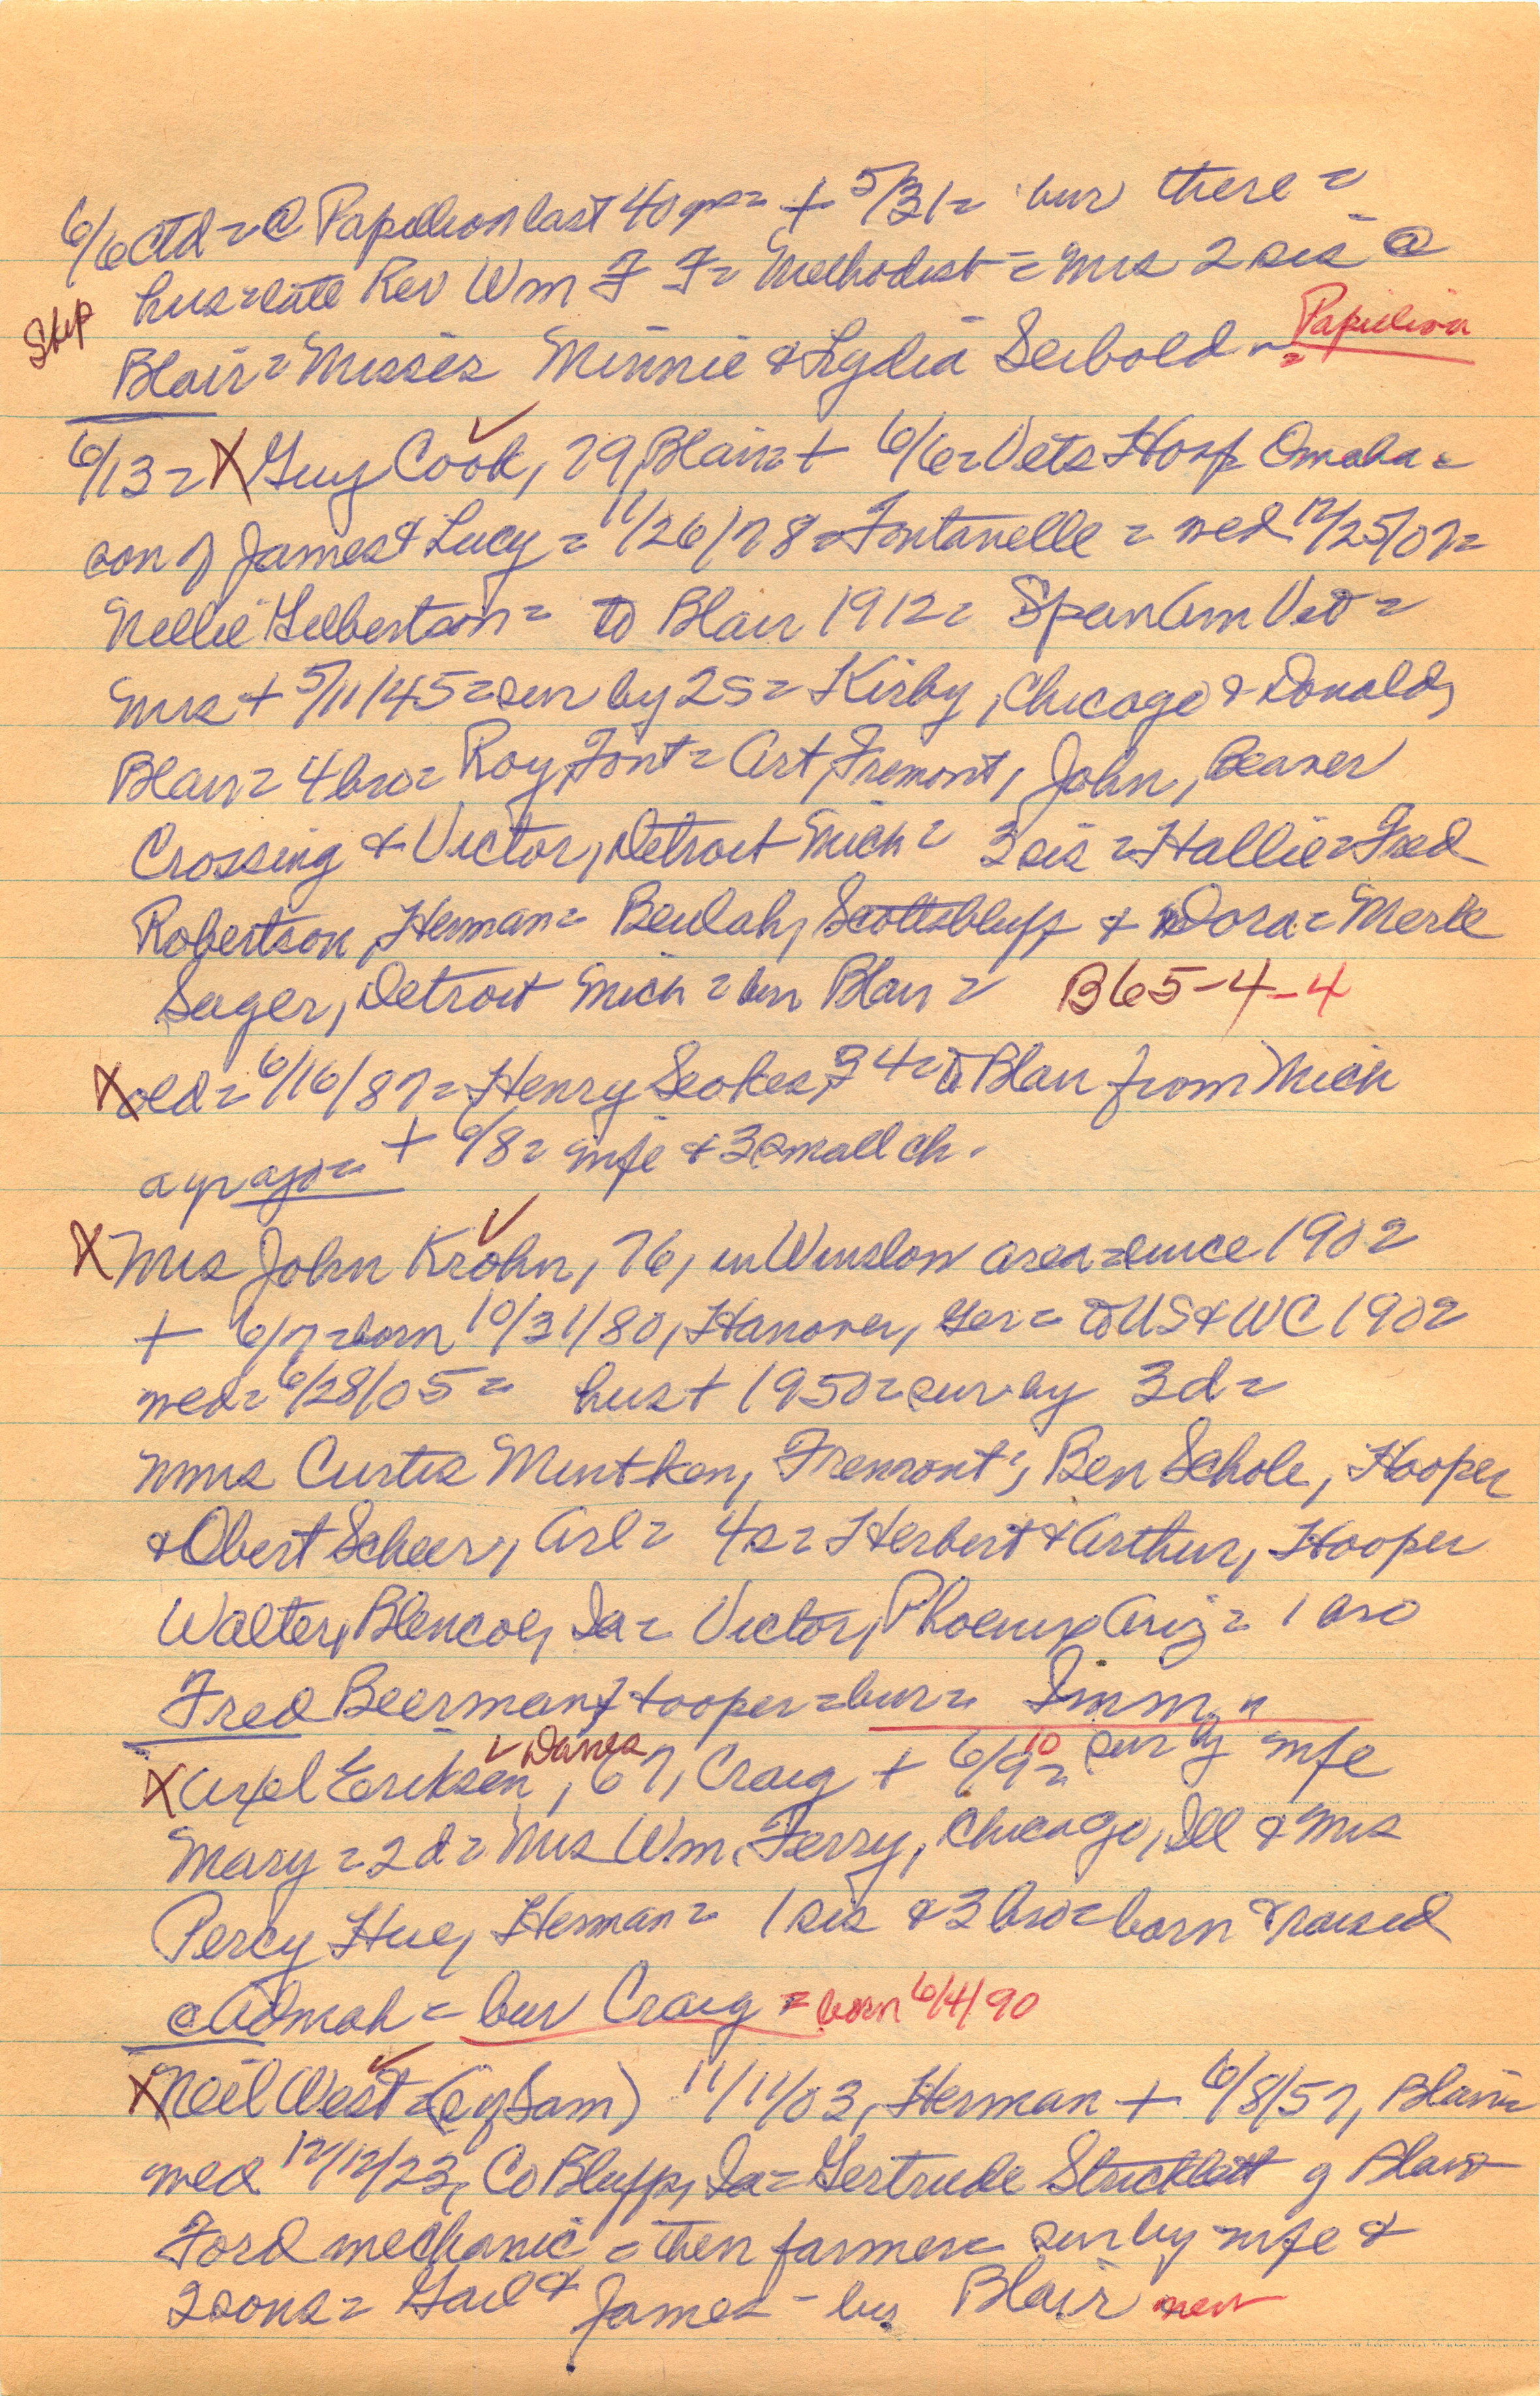 6/6 Ctd = @ Papillion last 40 yrs = + 5/31 = bur there =
Skip hus = late Rev Wm F F = Methodist = Mrs 2 sis @
Blair = Misses Minnie & Lydia Seibold = Papillion
6/13 = X Guy Cook, 79, Blair = + 6/6 = Vets Hosp Omaha =
son of James & Lucy = 11/26/78 = Fontanelle = wed 12/25/07 =
Nellie Gilbertson = to Blair 1912 = Span Am Vet =
Mrs + 5/11/45 = sur by 2 s = Kirby, Chicago & Donald,
Blair = 4 bro = Roy, Font = Art, Fremont, John, Beaver
Crossing & Victor, Detroit Mich = 3 sis = Hallie = Fred
Robertson, Herman = Beulah, Scottsbluff & Dora = Merle
Sager, Detroit Mich = bur Blair = B65-4-4
X old = 6/16/87 = Henry Stokes, 34 = to Blair from Mich
a yr ago = + 6/8 = wife & 3 small ch.
X Mrs John Krohn, 76, in Winslow area = since 1902
+ 6/7 = born 10/31/80, Hanover, Ger = to US & WC 1902
wed = 6/28/05 = hus + 1950 = sur by 3 d =
Mmes Curtis Muntken, Fremont; Ben Schole, Hooper
& Obert Scheer, Arl = 4 s = Herbert & Arthur, Hooper
Walter, Blencoe, Ia = Victor, Phoenix Ariz = 1 bro
Fred Beerman, Hooper = bur = Imm "
X Axel Eriksen Danes, 67, Craig + 6/9 10 = sur by wife
Mary = 2 d = Mrs Wm. Ferry, Chicago, Ill & Mrs
Percy Hue, Herman = 1 sis & 3 bro = born & raised
@ Admah = bur Craig = born 6/4/90
X Neil West = (s of Sam) 11/11/03, Herman + 6/8/57, Blair =
wed 12/12/23, Co Bluffs, Ia = Gertrude Stricklett of Blair
Ford mechanic = then farmer = sur by wife &
2 sons = Gail & James - bur Blair new